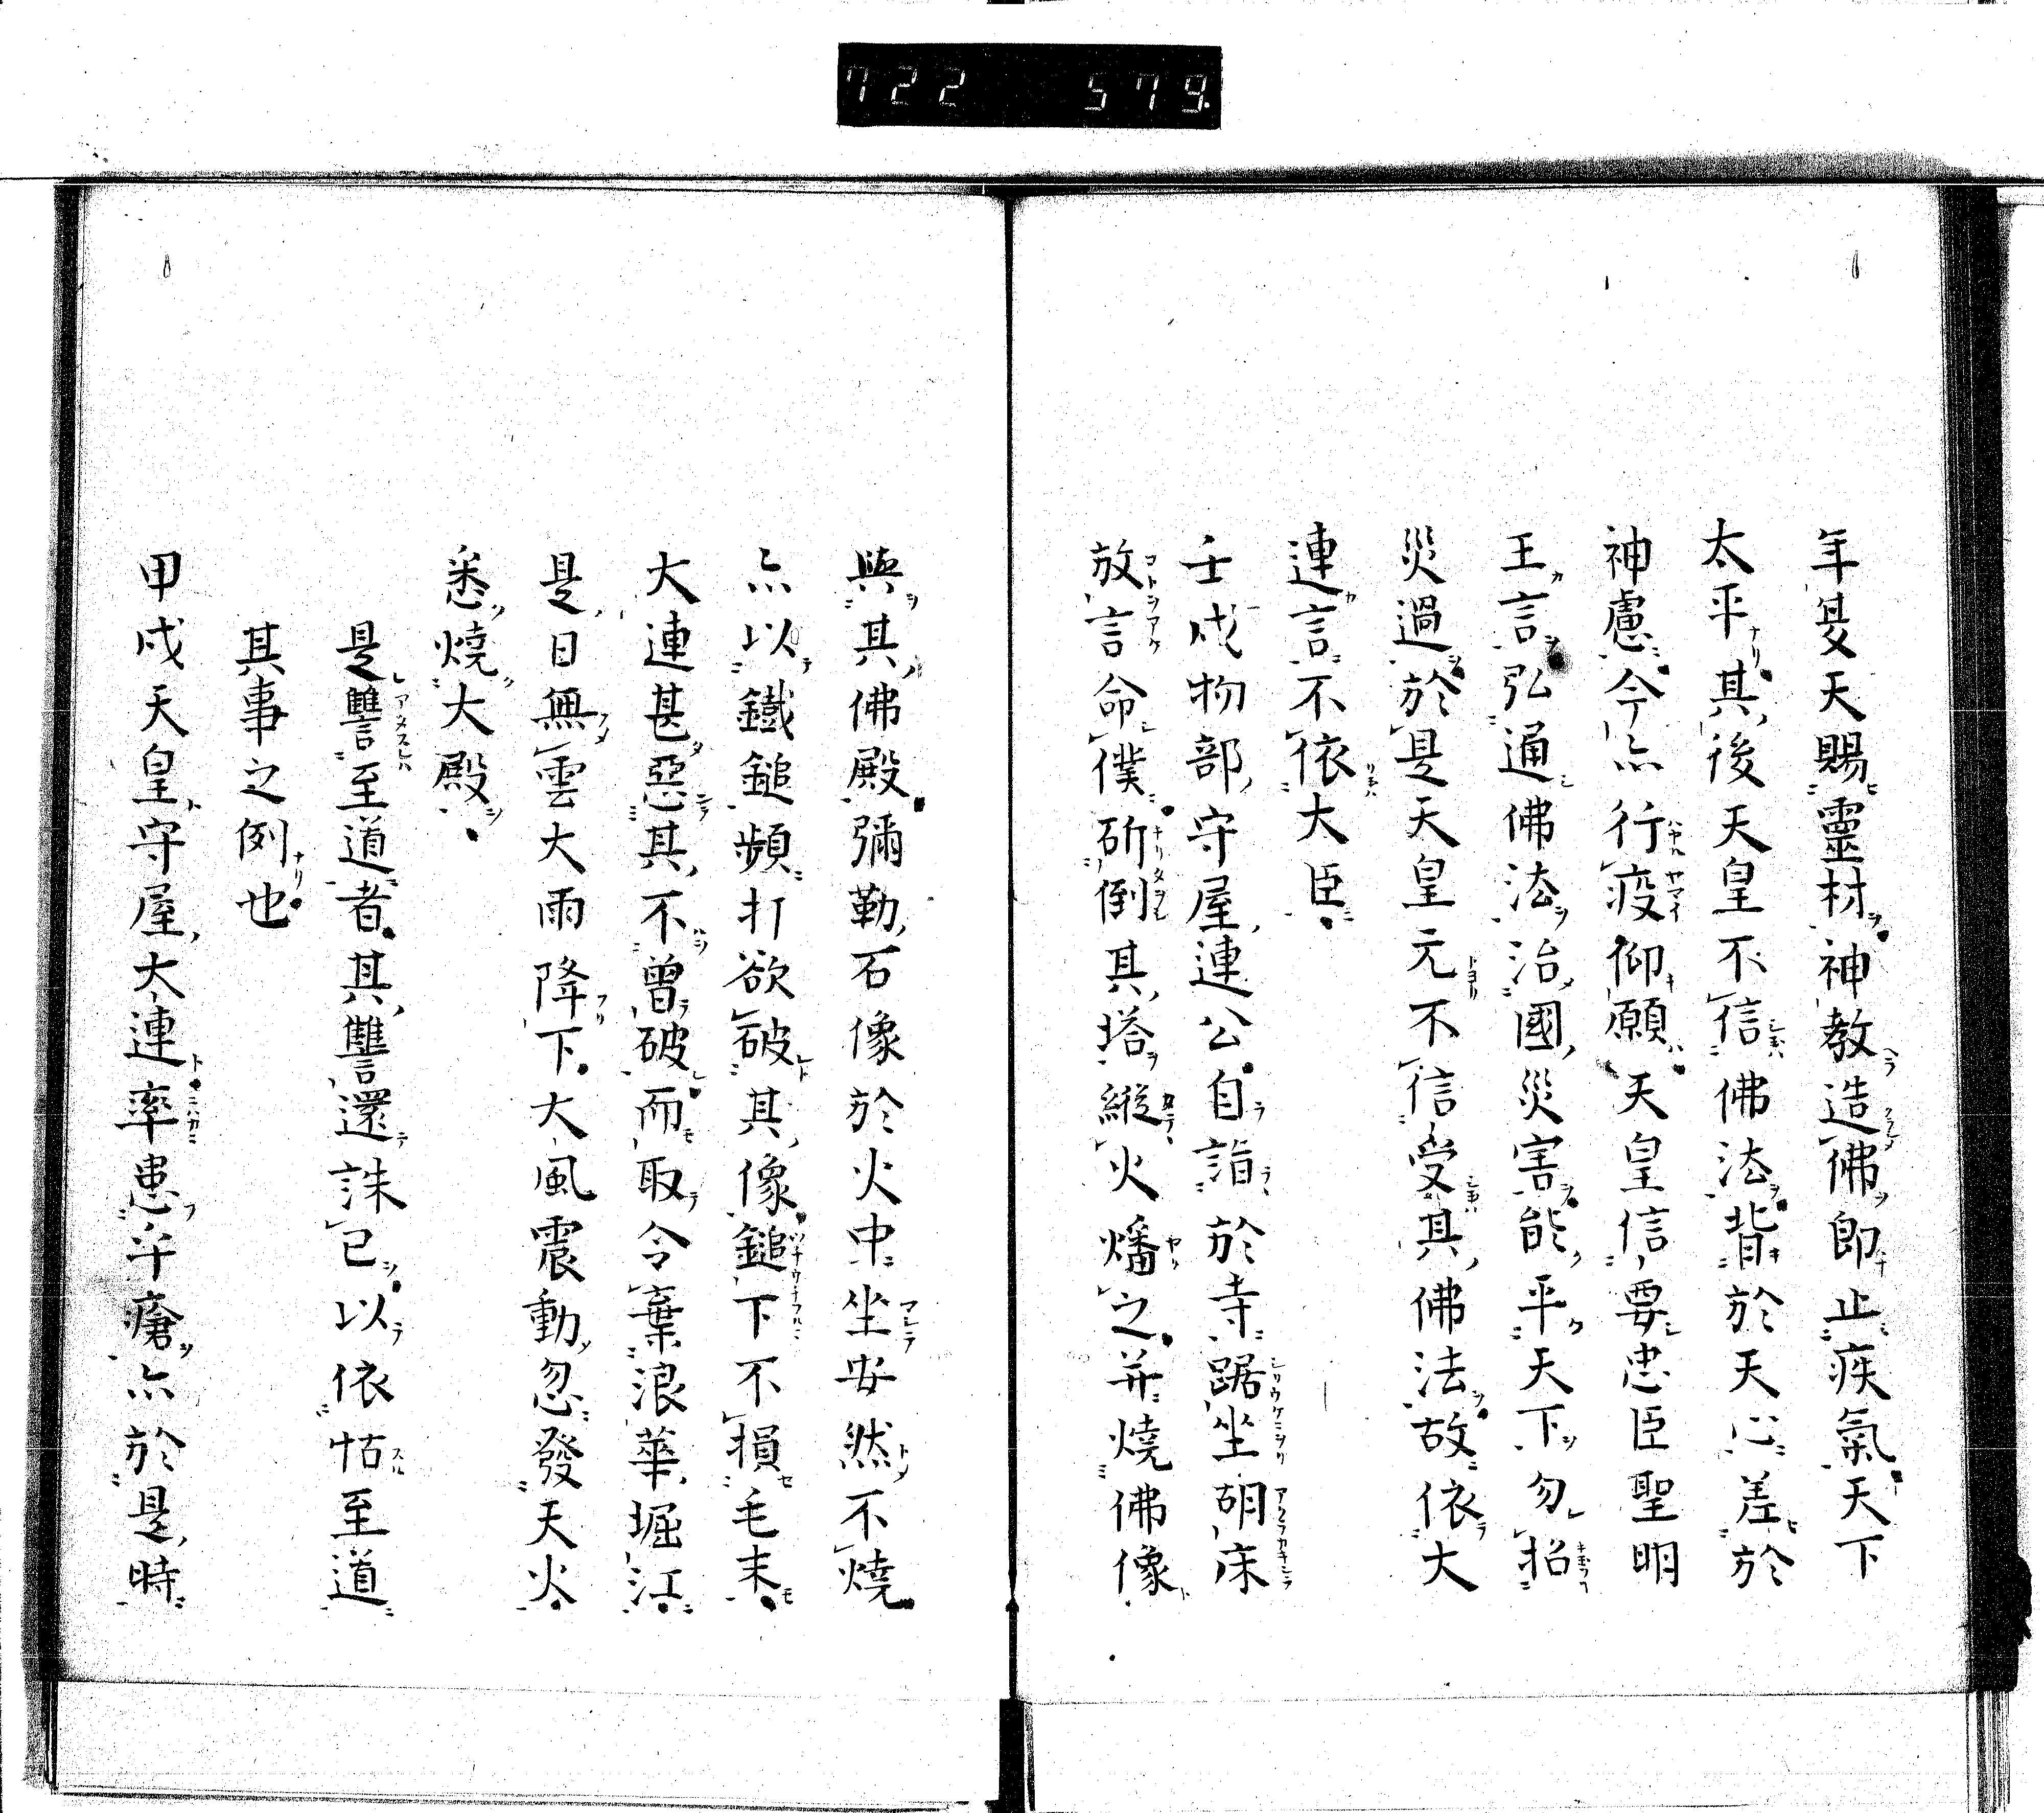 722 579.
年夏天賜靈材神教造佛即止疾氣天下
太平其後天皇不信佛法背於天心差於
神慮今亦行疫仰願天皇信要忠臣聖明
王言弘通佛法治國災害能平天下勿招
災過於是天皇元不信受其佛法故依大
連言不依大臣
壬戌物部守屋連公自詣於寺踞坐胡床
放言命僕斫倒其塔縱火燔之并燒佛像
與其佛殿彌勒石像於火中坐安然不燒
亦以鐵鎚頻打欲破其像鎚下不損毛末
大連甚惡其不曾破而取令棄浪華堀江
是日無雲大雨降下大風震動忽發天火
悉燒大殿
是讐至道者其讐還誅已以依怙至道
其事之例也
甲戌天皇守屋大連率患于瘡亦於是時